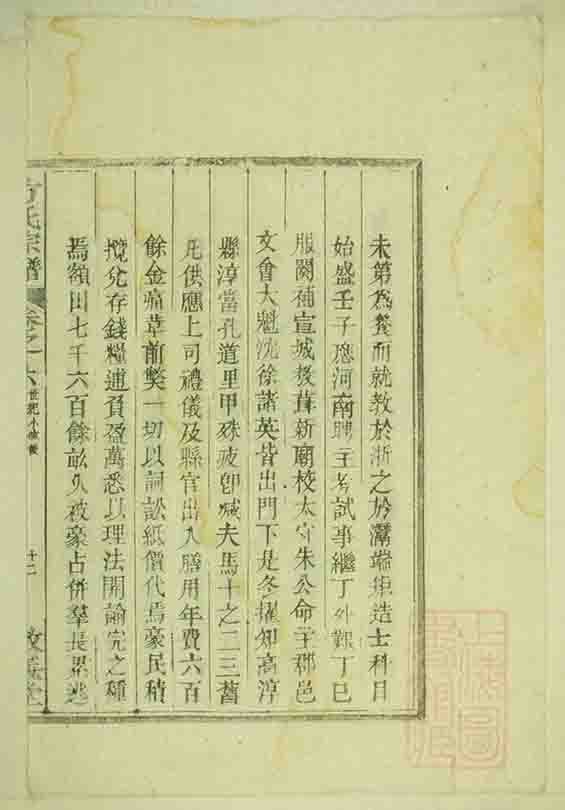 未第為養而就教於浙之於潛端矩造士科目
始盛壬子應河南聘主考試事繼丁外艱丁巳
服闋補宣城教葺新廟校太守朱公命主郡邑
文會大魁沈徐諸英皆出門下是冬擢知高淳
縣淳當孔道里甲殊疲即喊夫馬十之二三舊
凡供應上司禮儀及縣官出入膳用年費六百
餘金痛革前獘一切以詞訟紙價代焉豪民積
攬兌存錢糧逋負盈萬悉以理法開諭完之種
馬額田七千六百餘畝久被豪占併羣長累逃
方氏宗譜
卷之十六
世紀小
十二
堂
上海圖